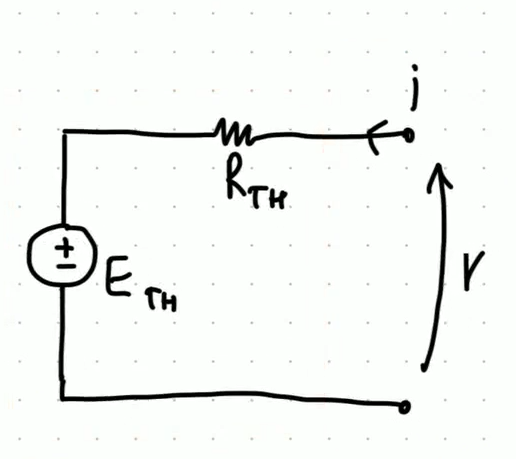 i
R_TH
±
E_TH
V